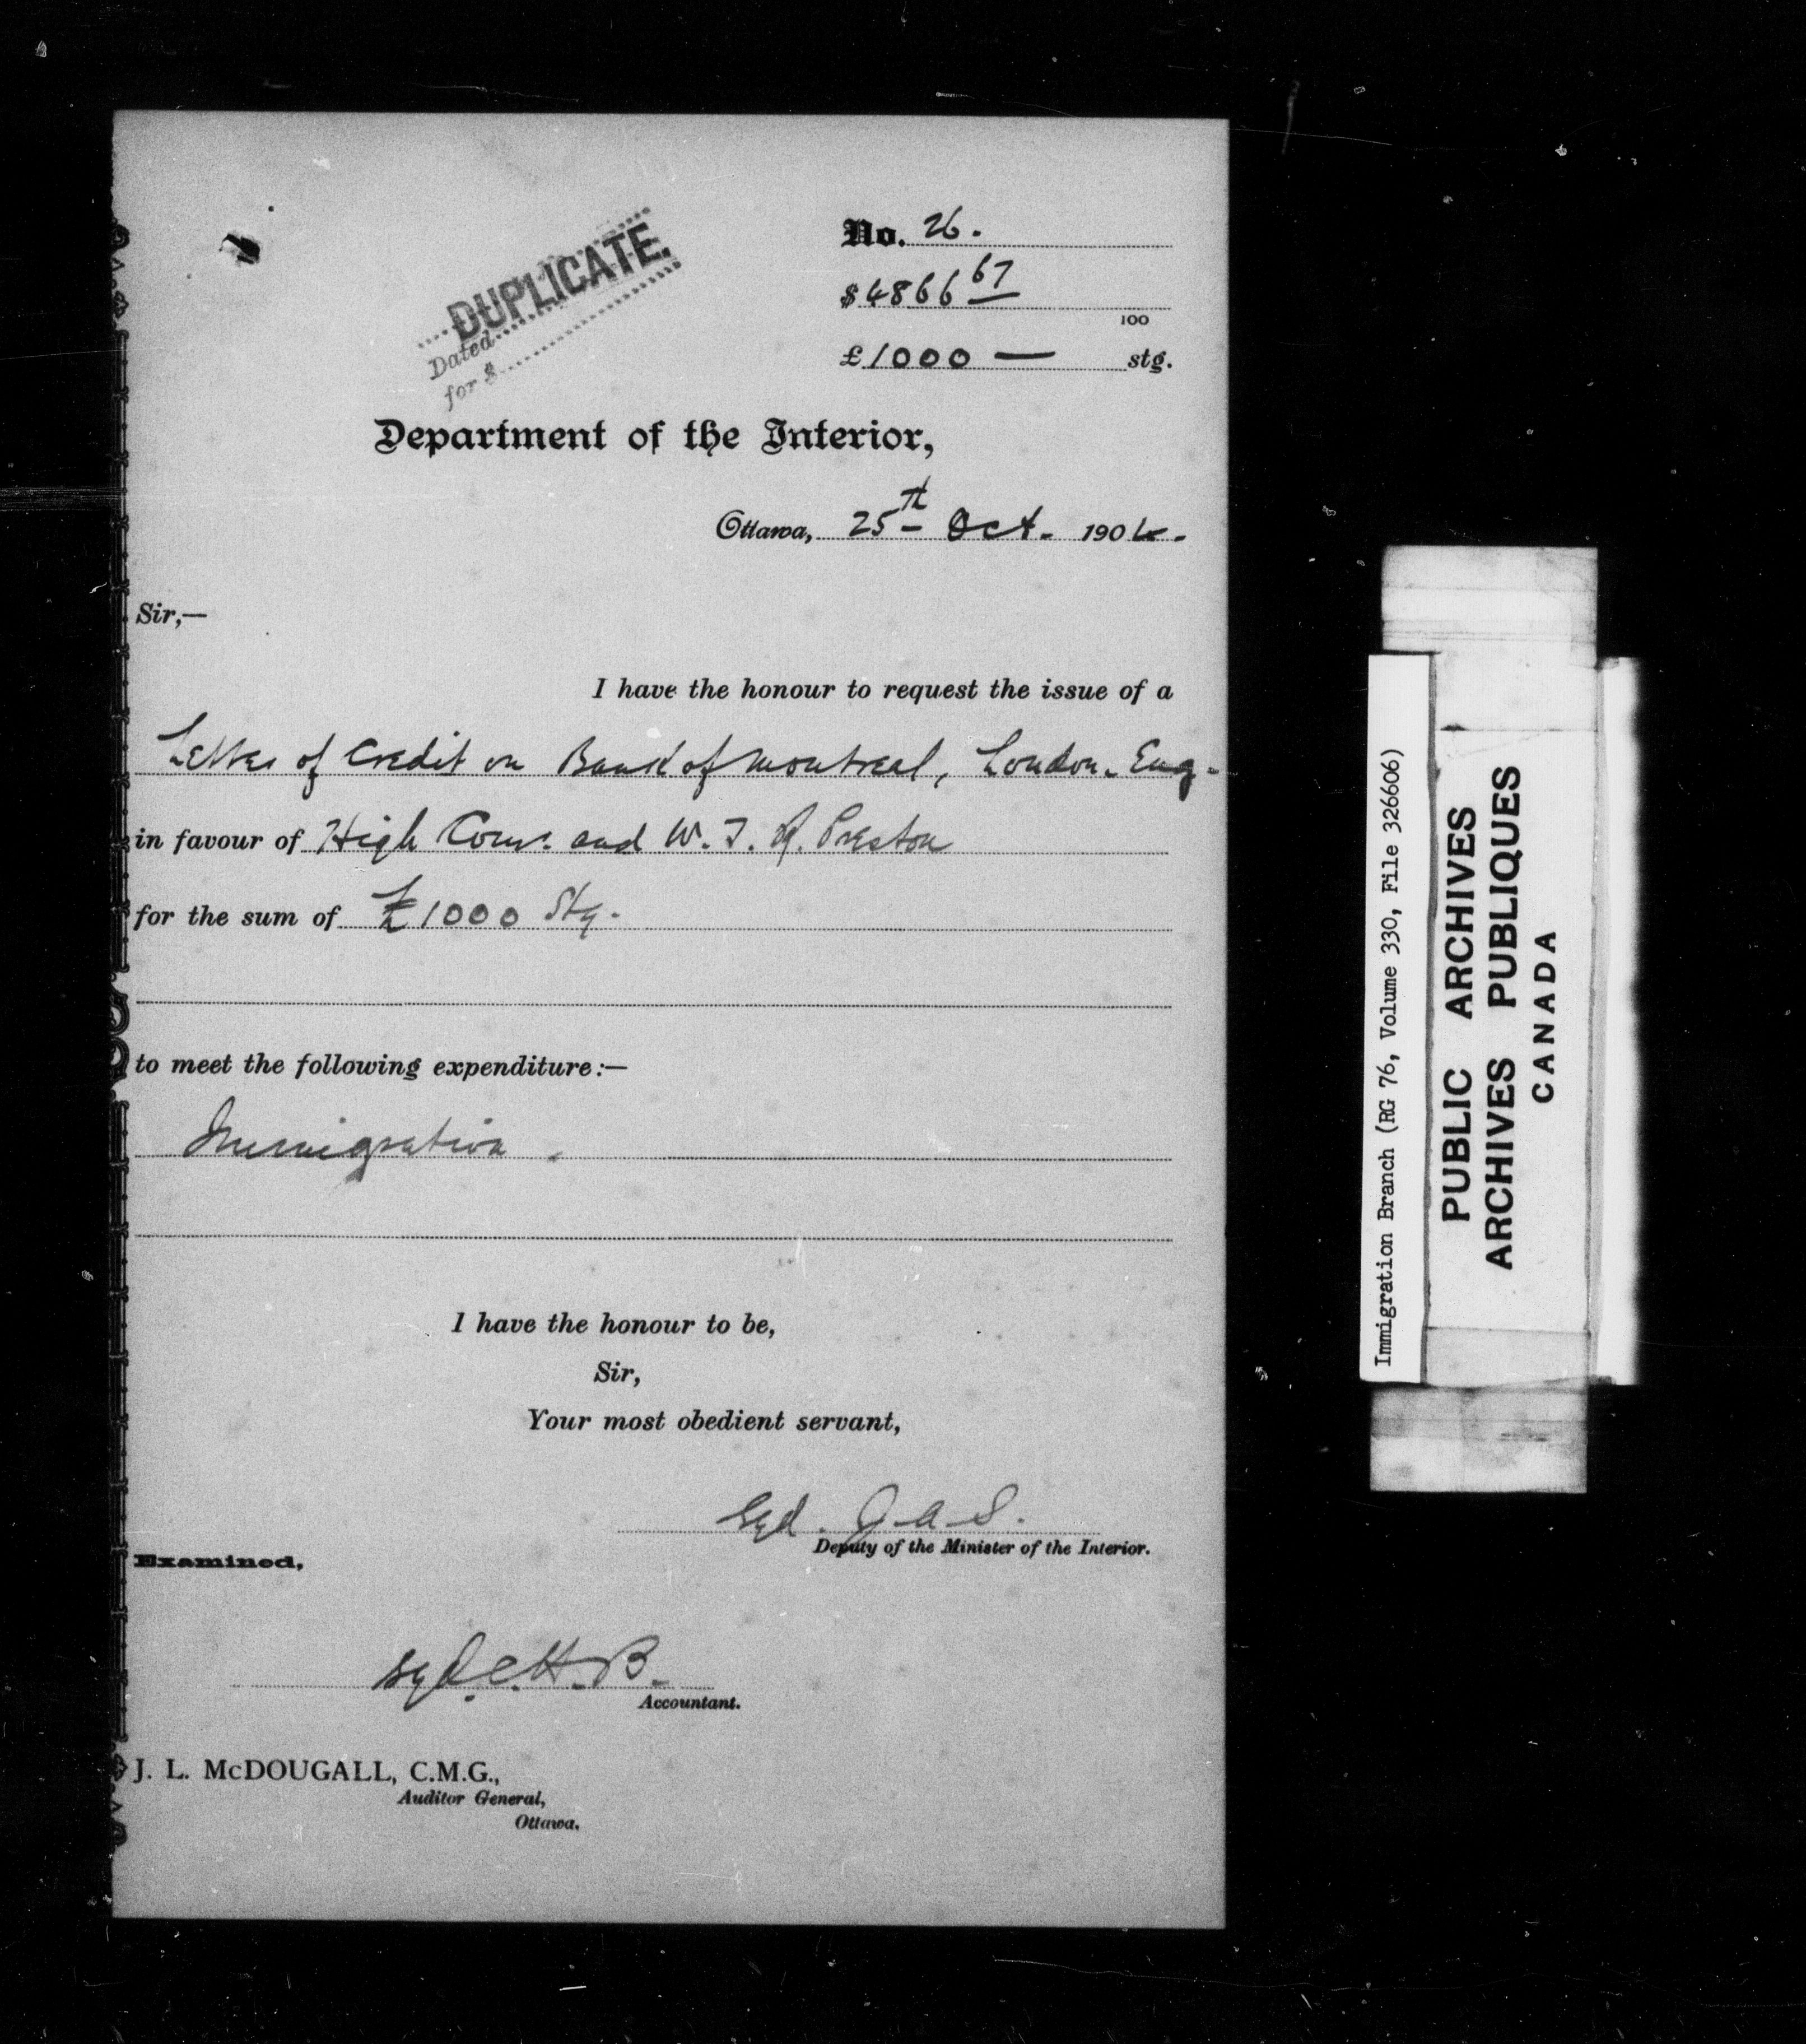 No. 26.
$4866 67
100
£1000 — stg.
DUPLICATE.
Dated
for $
Department of the Interior,
Ottawa, 25th Oct. 1904.
Sir,—
I have the honour to request the issue of a
Letter of Credit on Bank of Montreal, London. Eng.
in favour of High Comr. and W. T. R. Preston
for the sum of £1000 Stg.
to meet the following expenditure:—
Immigration.
I have the honour to be,
Sir,
Your most obedient servant,
Sgd. J. A. S.
Deputy of the Minister of the Interior.
Examined,
Sgd. C. H. B.
Accountant.
J. L. McDOUGALL, C.M.G.,
Auditor General,
Ottawa.
Immigration Branch (RG 76, Volume 330, File 326606)
PUBLIC ARCHIVES
ARCHIVES PUBLIQUES
CANADA